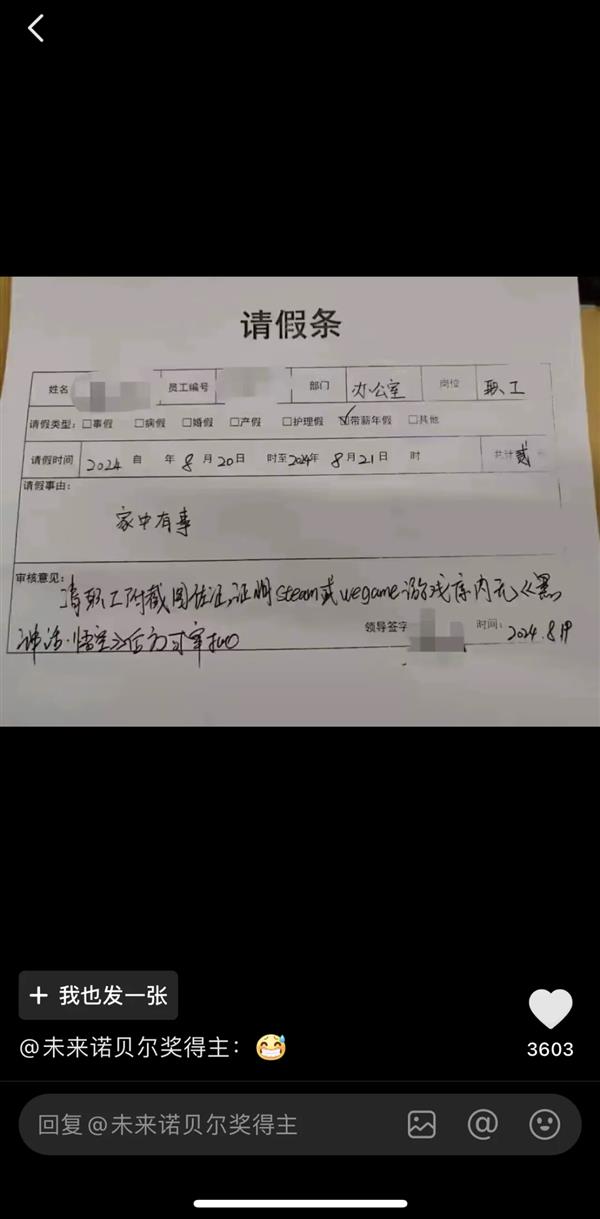 请假条
姓名 员工编号 部门 办公室 岗位 职工
请假类型：□事假 □病假 □婚假 □产假 □护理假 ☑带薪年假 □其他
请假时间 2024 自 年 8 月 20 日 时至 2024 年 8 月 21 日 时 共计 贰
请假事由：
家中有事
审核意见：
请职工附截图佐证，证明steam或wegame游戏库内无《黑
神话·悟空》后方可审批
领导签字 时间：2024.8.19
我也发一张
@未来诺贝尔奖得主：
3603
回复@未来诺贝尔奖得主